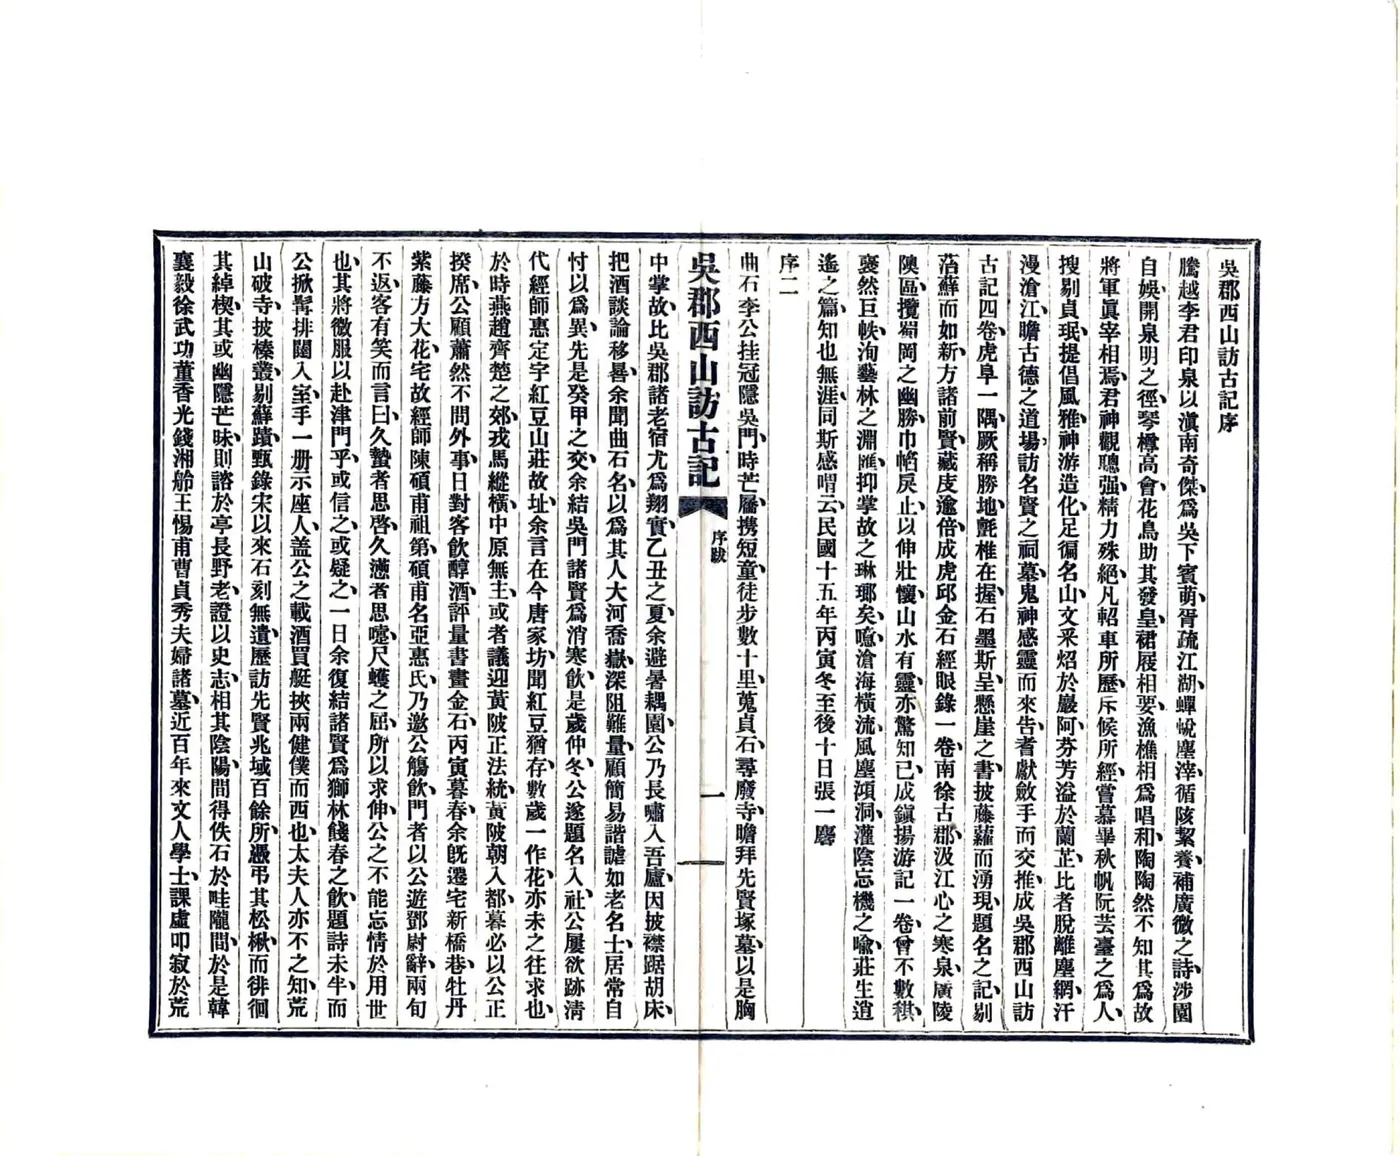 吳郡西山訪古記序
騰越李君印泉以滇南奇傑爲吳下賓萌胥疏江湖蟬蛻塵滓循陔絜養補廣微之詩涉園
自娛開泉明之徑琴樽高會花鳥助其發皇裙屐相要漁樵相爲唱和陶陶然不知其爲故
將軍眞宰相焉君神觀聰强精力殊絕凡軺車所歷斥候所經嘗慕畢秋帆阮芸臺之爲人
搜剔貞珉提倡風雅神游造化足徧名山文采炤於巖阿芬芳溢於蘭芷比者脫離塵網汗
漫滄江瞻古德之道場訪名賢之祠墓鬼神感靈而來告耆獻斂手而交推成吳郡西山訪
古記四卷虎阜一隅厥稱勝地氈椎在握石墨斯呈懸崖之書披藤蘿而湧現題名之記剔
落蘚而如新方諸前賢藏庋逾倍成虎邱金石經眼錄一卷南徐古郡汲江心之寒泉廣陵
隩區攬蜀岡之幽勝巾帢戾止以伸壯懷山水有靈亦驚知已成鎭揚游記一卷曾不數稘
裒然巨帙洵藝林之淵匯抑掌故之琳瑯矣噫滄海橫流風塵澒洞灌陰忘機之喩莊生逍
遙之篇知也無涯同斯感喟云民國十五年丙寅冬至後十日張一麐
序二
曲石李公挂冠隱吳門時芒屩携短童徒步數十里蒐貞石尋廢寺瞻拜先賢塚墓以是胸
吳郡西山訪古記
序跋
一
中掌故比吳郡諸老宿尤爲翔實乙丑之夏余避暑耦園公乃長嘯入吾廬因披襟踞胡床
把酒談論移晷余聞曲石名以爲其人大河喬嶽深阻難量顧簡易諧謔如老名士居常自
忖以爲異先是癸甲之交余結吳門諸賢爲消寒飲是歲仲冬公遂題名入社公屢欲跡淸
代經師惠定宇紅豆山莊故址余言在今唐家坊聞紅豆猶存數歲一作花亦未之往求也
於時燕趙齊楚之郊戎馬縱橫中原無主或者議迎黃陂正法統黃陂朝入都暮必以公正
揆席公顧蕭然不問外事日對客飲醇酒評量書畫金石丙寅暮春余旣遷宅新橋巷牡丹
紫藤方大花宅故經師陳碩甫祖第碩甫名亞惠氏乃邀公觴飲門者以公遊鄧尉辭兩旬
不返客有笑而言曰久蟄者思啓久懣者思嚏尺蠖之屈所以求伸公之不能忘情於用世
也其將微服以赴津門乎或信之或疑之一日余復結諸賢爲獅林餞春之飲題詩未半而
公掀髯排闥入室手一册示座人盖公之載酒買艇挾兩健僕而西也太夫人亦不之知荒
山破寺披榛叢剔蘚蹟甄錄宋以來石刻無遺歷訪先賢兆域百餘所憑弔其松楸而徘徊
其綽楔其或幽隱芒昧則諮於亭長野老證以史志相其陰陽間得佚石於畦隴間於是韓
襄毅徐武功董香光錢湘舲王惕甫曹貞秀夫婦諸墓近百年來文人學士課虛叩寂於荒